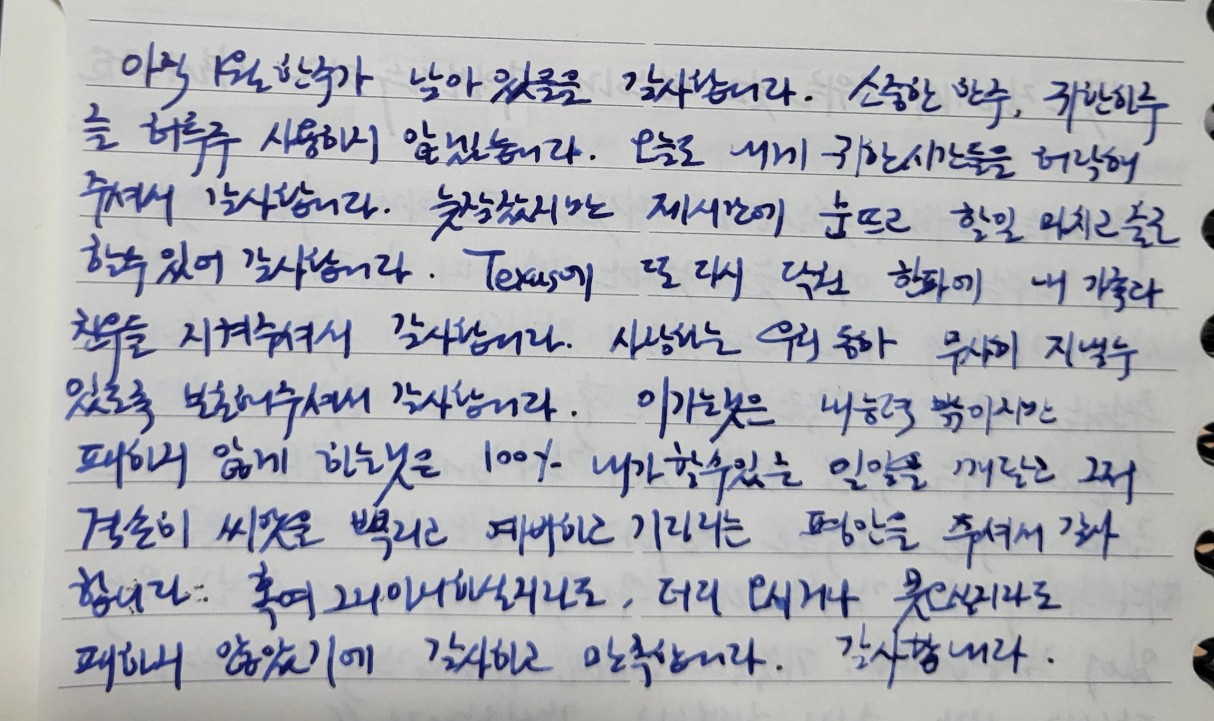 아직 1월 한주가 남아 있음을 감사합니다. 소중한 한주, 귀한하루
를 허투루 사용하지 않겠습니다. 오늘도 내게 귀한시간들을 허락해
주셔서 감사합니다. 늦잠잤지만 제시간에 눈뜨고 할일 마치고 출근
할수있어 감사합니다. Texas에 또 다시 닥친 한파에 내 가족과
친구들 지켜주셔서 감사합니다. 사랑하는 우리 동하 무사히 지낼수
있도록 보호해주셔서 감사합니다. 이기는것은 내능력 밖이지만
패하지 않게 하는것은 100% 내가 할수있는 일임을 깨닫고 그저
겸손히 씨앗을 뿌리고 예배하고 기다리는 평안을 주셔서 감사
합니다. 혹여 그리아니하실지라도, 더디 오시거나 못오실지라도
패하지 않았기에 감사하고 만족합니다. 감사합니다.